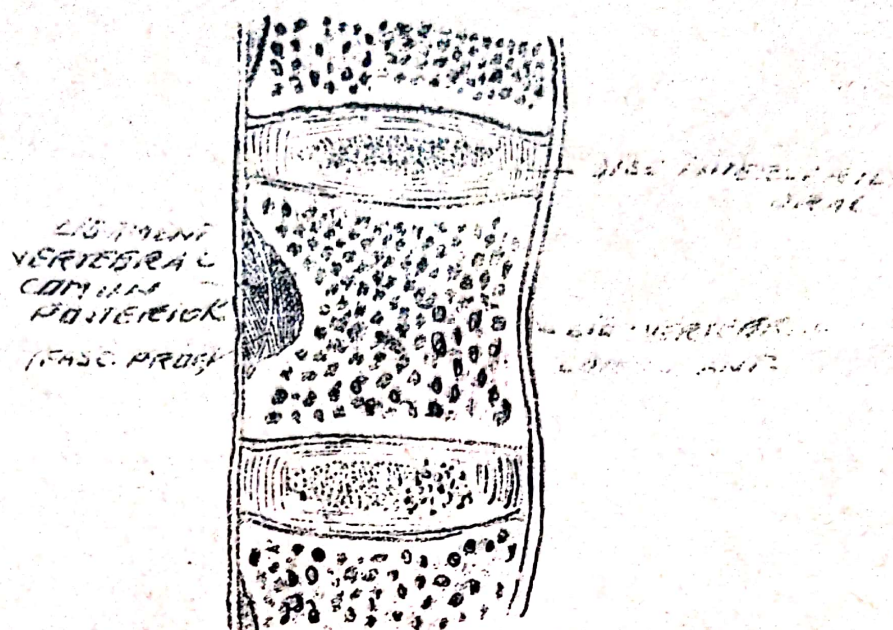 LIGAMENT
VERTEBRAL
COMUN
POSTERIOR
(FASC. PROF)
DISC INTERVERTE
BRAL
LIG. VERTEBRAL
ANT.